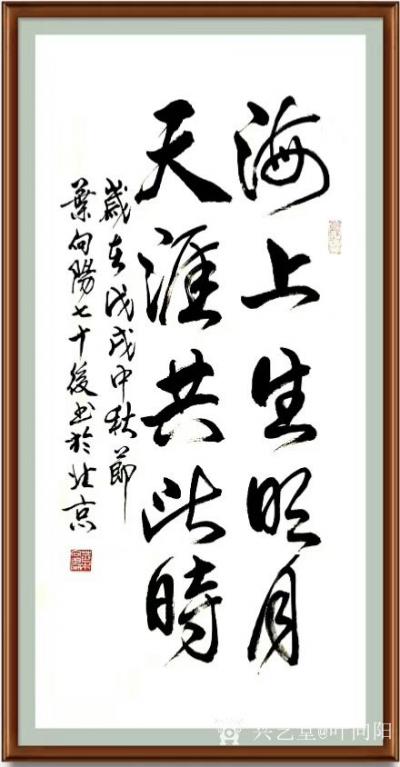 海上生明月
天涯共此時
歲在戊戌中秋節
葉向陽七十後书於北京
兴艺堂@叶向阳